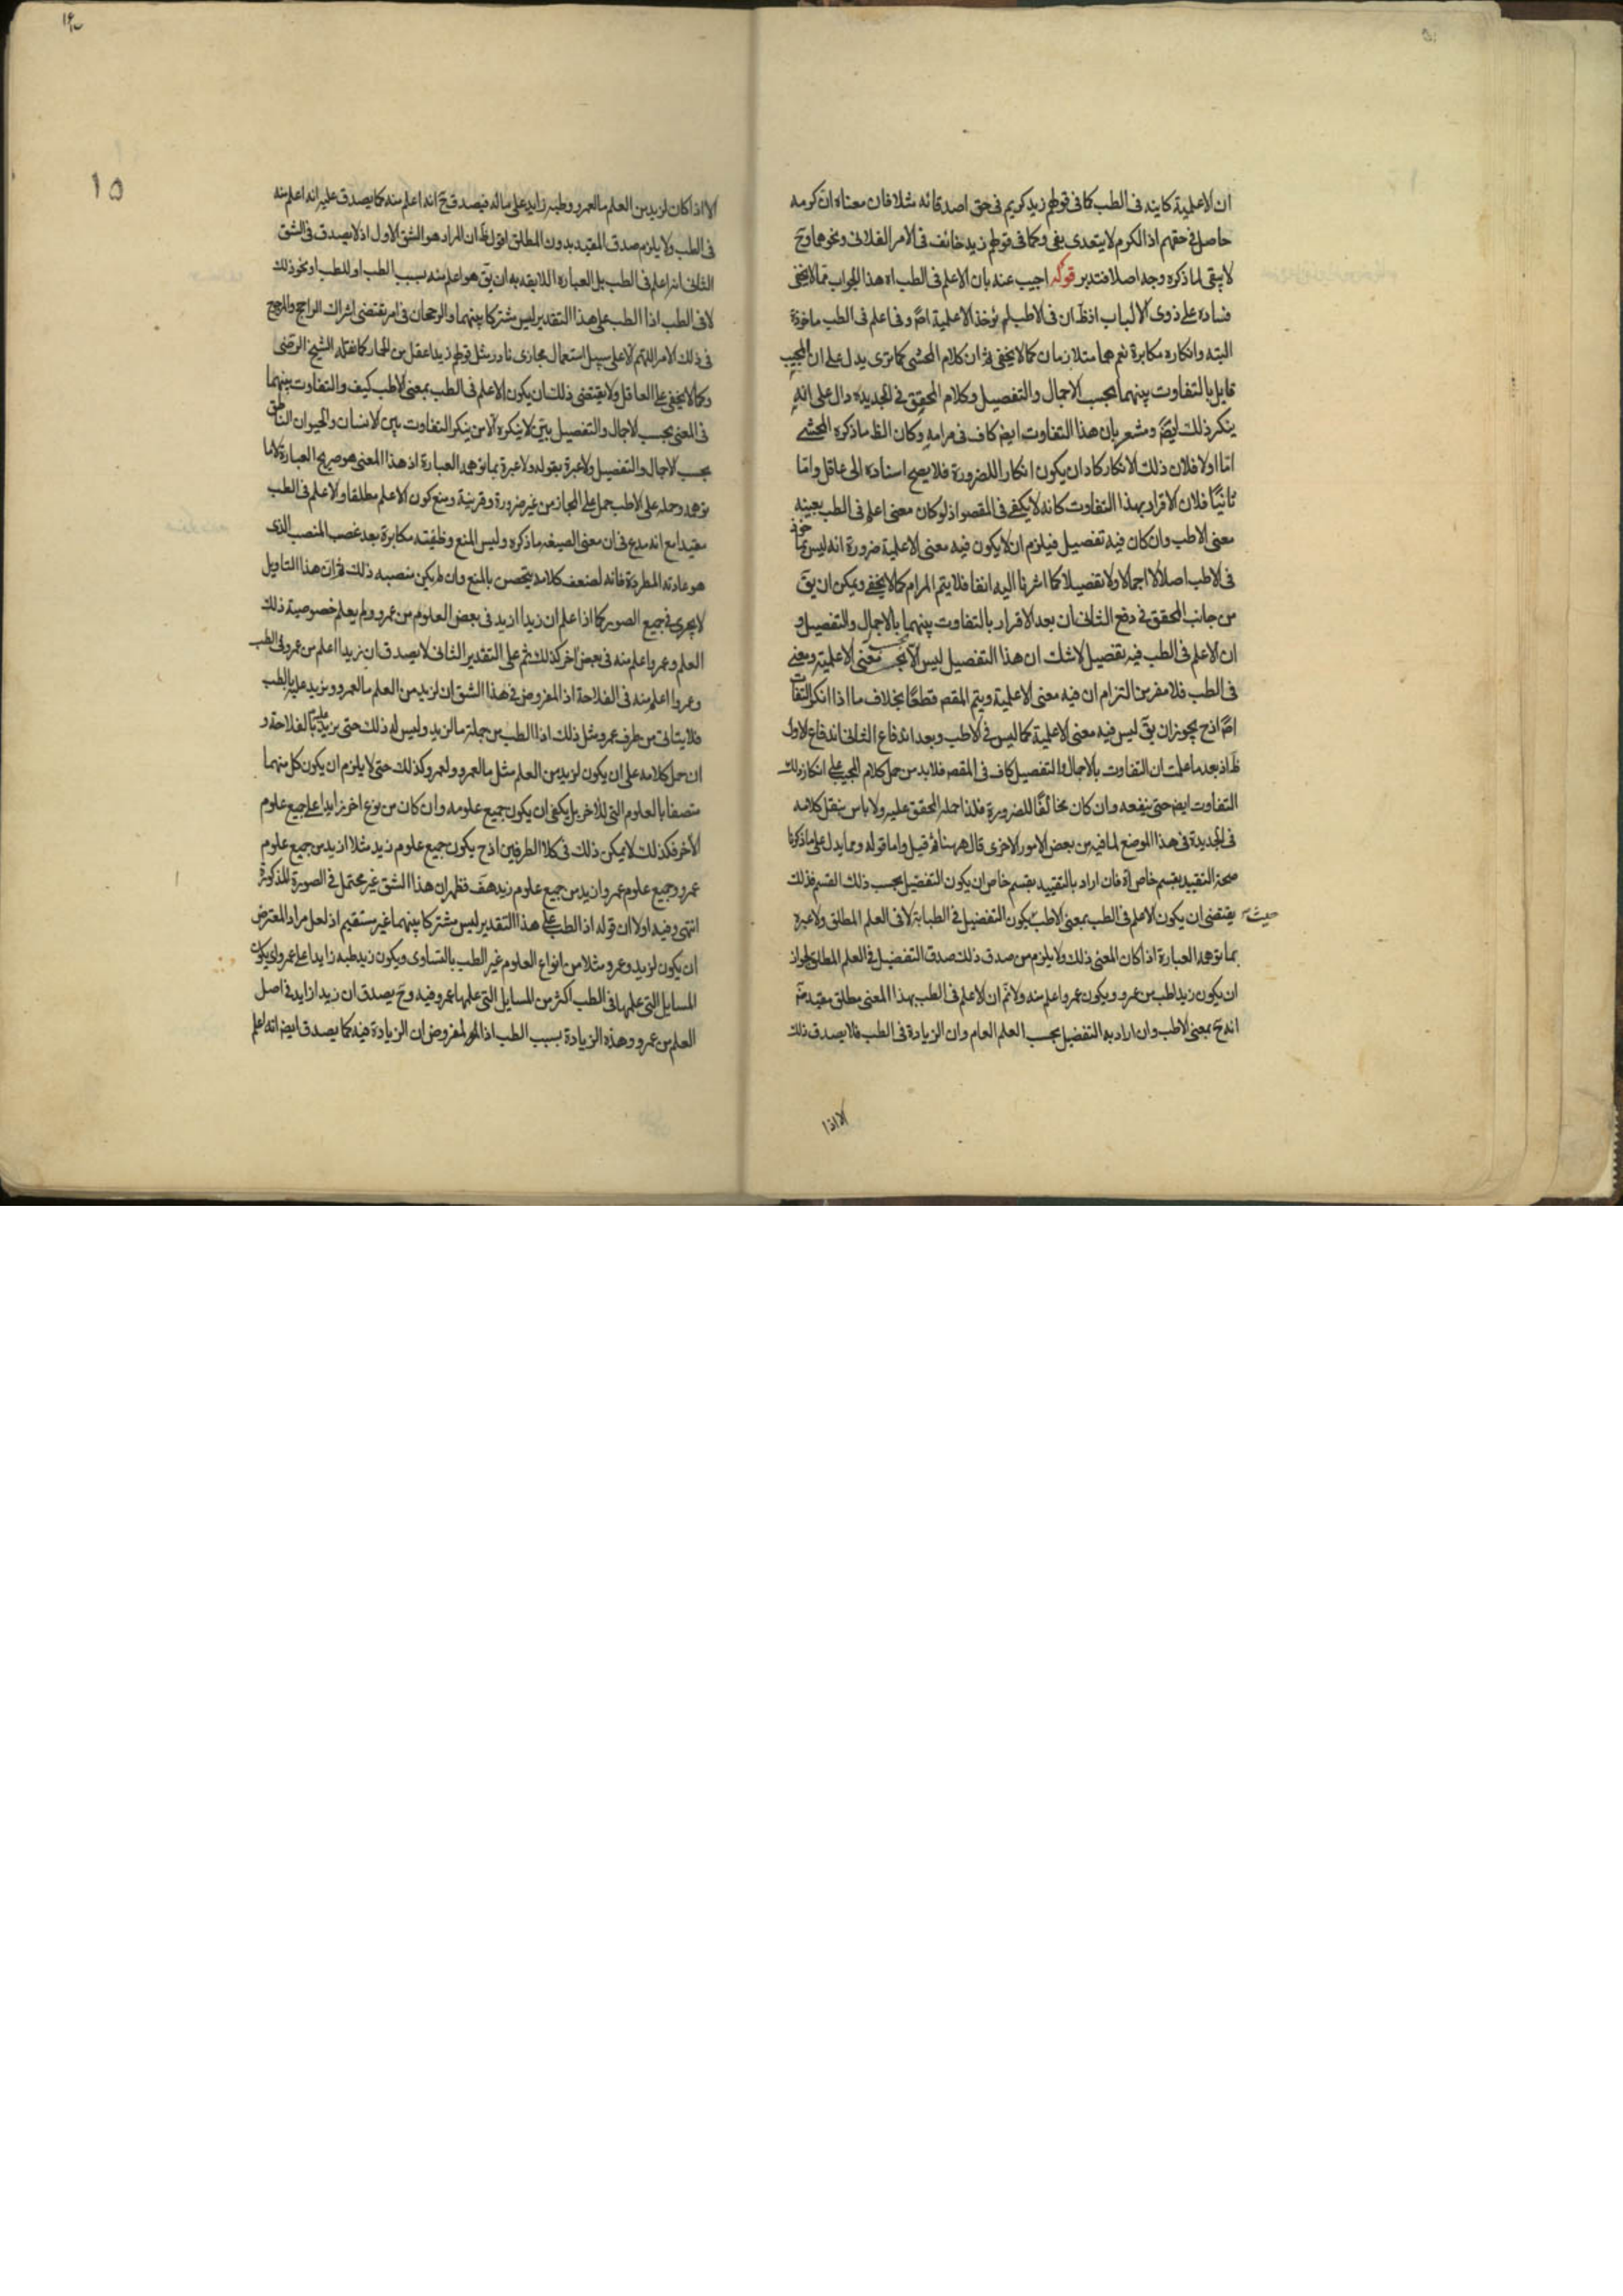 ان الاعلمية كاينه فى الطب كما فى قولهم زيد كريم فى حق اصدقائه مثلا فان معناه ان كرمه
حاصل فى حقهم اذ الكرم لا يتعدى بفى وكما فى قولهم زيد خائف فى الامر الفلانى ونحوها وح
لا يبقى لما ذكره وجه اصلا فتدبر قوله اجيب عنه بان الاعلم فى الطب اه هذا الجواب مما لا يخفى
فساده على ذوى الالباب اذ ظ ان فى الاطب لم يؤخذ الاعلمية اصلا وفى اعلم فى الطب ماخوذة
البته وانكاره مكابرة نعم هما متلازمان كما لا يخفى ثم ان كلام المحشى كما ترى يدل على ان المجيب
قايل بالتفاوت بينهما بحسب الاجمال والتفصيل وكلام المحقق فى الجديدة دال على انه
ينكر ذلك ايضا ومشعر بان هذا التفاوت ايض كاف فى مرامه وكان الظ ما ذكره المحشى
اما اولا فلان ذلك الانكار كاد ان يكون انكارا للضرورة فلا يصح اسناده الى عاقل واما
ثانيا فلان الاقرار بهذا التفاوت كانه لا يكفى فى المقصو اذ لو كان معنى اعلم فى الطب بعينه
معنى الاطب وان كان فيه تفصيل فيلزم ان لا يكون فيه معنى الاعلمية ضرورة انه ليس ماخوذ
فى الاطب اصلا لا اجمالا ولا تفصيلا كما اشرنا اليه انفا فلا يتم المرام كما لا يخفى ويمكن ان يق
من جانب المحقق فى دفع الثانى ان بعد الاقرار بالتفاوت بينهما بالاجمال والتفصيل و
ان الاعلم فى الطب فيه تفصيل لا شك ان هذا التفصيل ليس الا بحسب معنى الاعلمية ومعنى
فى الطب فلا مفر من التزام ان فيه معنى الاعلمية ويتم المقصو قطعا بخلاف ما اذا انكر التفاوت
اصلا اذ ح يجوز ان يق ليس فيه معنى الاعلمية كما ليس فى الاطب وبعد اندفاع الثانى اندفاع الاول
ظ اذ بعد ما علمت ان التفاوت بالاجمال والتفصيل كاف فى المقصو فلا بد من حمل كلام المجيب على انكار ذلك
التفاوت ايض حتى ينفعه وان كان مخالفا للضرورة فلذا حمله المحقق عليه ولا باس بنقل كلامه
فى الجديدة فى هذا الموضع لما فيه من بعض الامور الاخرى قال ههنا ثم قيل واما قوله ومما يدل على ما ذكرنا
صحة التقييد بقسم خاص اه فان اراد بالتقييد بقسم خاص ان يكون التفضيل بحسب ذلك القسم فذلك
حيث يقتضى ان يكون الاعلم فى الطب بمعنى الاطب يكون التفضيل فى الطبابة لا فى العلم المطلق ولا عبره
بما توهمه العبارة اذا كان المعنى ذلك ولا يلزم من صدق ذلك صدق التفضيل فى العلم المطلق لجواز
ان يكون زيد اطب من عمرو ويكون عمرو اعلم منه ولا نم ان الاعلم فى الطب بهذا المعنى مطلق مقيد
انه ح بمعنى الاطب وان اراد به التفضيل بحسب العلم العام وان الزيادة فى الطب فلا يصدق ذلك
الا اذا
١٥
الا اذا كان لزيد من العلم ما لعمرو وطبه زايد على ماله فيصدق ح انه اعلم منه كما يصدق عليه انه اعلم منه
فى الطب ولا يلزم صدق المقيد بدون المطلق اقول ظ ان المراد هو الشق الاول اذ لا يصدق فى الشق
الثانى انه اعلم فى الطب بل العبارة اللايقه به ان يق هو اعلم منه بسبب الطب او للطب او نحو ذلك
لا فى الطب اذ الطب على هذا التقدير ليس مشتركا بينهما والرجحان فى امر يقتضى اشراك الراجح والمرجح
فى ذلك الامر اللهم الا على سبيل استعمال مجازى نادر مثل قولهم زيد اعقل من الحمار كما نقله الشيخ الرضى
وكما لا يخفى على العاقل ولا يقتضى ذلك ان يكون الاعلم فى الطب بمعنى الاطب كيف والتفاوت بينهما
فى المعنى بحسب الاجمال والتفصيل بين لا ينكره الا من ينكر التفاوت بين الانسان والحيوان الناطق
بحسب الاجمال والتفصيل ولا عبرة بقوله ولا عبرة بما توهمه العبارة اذ هذا المعنى هو صريح العبارة لا ما
توهمه وحمله على الاطب حمل على المجاز من غير ضرورة وقرينة ومنع كون الاعلم مطلقا والاعلم فى الطب
مقيدا مع انه مدع فى ان معنى الصيغه ما ذكره وليس المنع وظيفته مكابرة بعد غصب المنصب الذى
هو عادته المطردة فانه لضعف كلامه يتحصن بالمنع وان لم يكن منصبه ذلك ثم ان هذا التاويل
لا يجرى فى جميع الصور كما اذا علم ان زيدا ازيد فى بعض العلوم من عمرو ولم يعلم خصوصية ذلك
العلم وعمرو اعلم منه فى بعض اخر كذلك ثم على التقدير الثانى لا يصدق ان زيدا اعلم من عمرو فى الطب
وعمروا اعلم منه فى الفلاحة اذ المفروض فى هذا الشق ان لزيد من العلم ما لعمرو ويزيد عليه بالطب
فلا يتاتى من طرف عمرو مثل ذلك اذ الطب من جملة ما لزيد وليس له ذلك حتى يزيد عليه بالفلاحة و
ان حمل كلامه على ان يكون لزيد من العلم مثل ما لعمرو ولعمرو كذلك حتى لا يلزم ان يكون كل منهما
متصفا بالعلوم التى للاخر بل يكفى ان يكون جميع علومه وان كان من نوع اخر زايدا على جميع علوم
الاخر فكذلك لا يمكن ذلك فى كلا الطرفين اذ ح يكون جميع علوم زيد مثلا ازيد من جميع علوم
عمرو وجميع علوم عمرو ازيد من جميع علوم زيد هف فظهر ان هذا الشق غير محتمل فى الصورة المذكورة
انتهى وفيه اولا ان قوله اذ الطب على هذا التقدير ليس مشتركا بينهما غير مستقيم اذ لعل مراد المعترض
ان يكون لزيد وعمرو مثلا من انواع العلوم غير الطب بالتساوى ويكون زيد طبه زايدا على عمرو اى يكون
المسايل التى علمها فى الطب اكثر من المسايل التى علمها عمرو فيه وح يصدق ان زيدا زايد فى اصل
العلم من عمرو وهذه الزيادة بسبب الطب اذ المفروض ان الزيادة فيه كما يصدق ايض انه اعلم